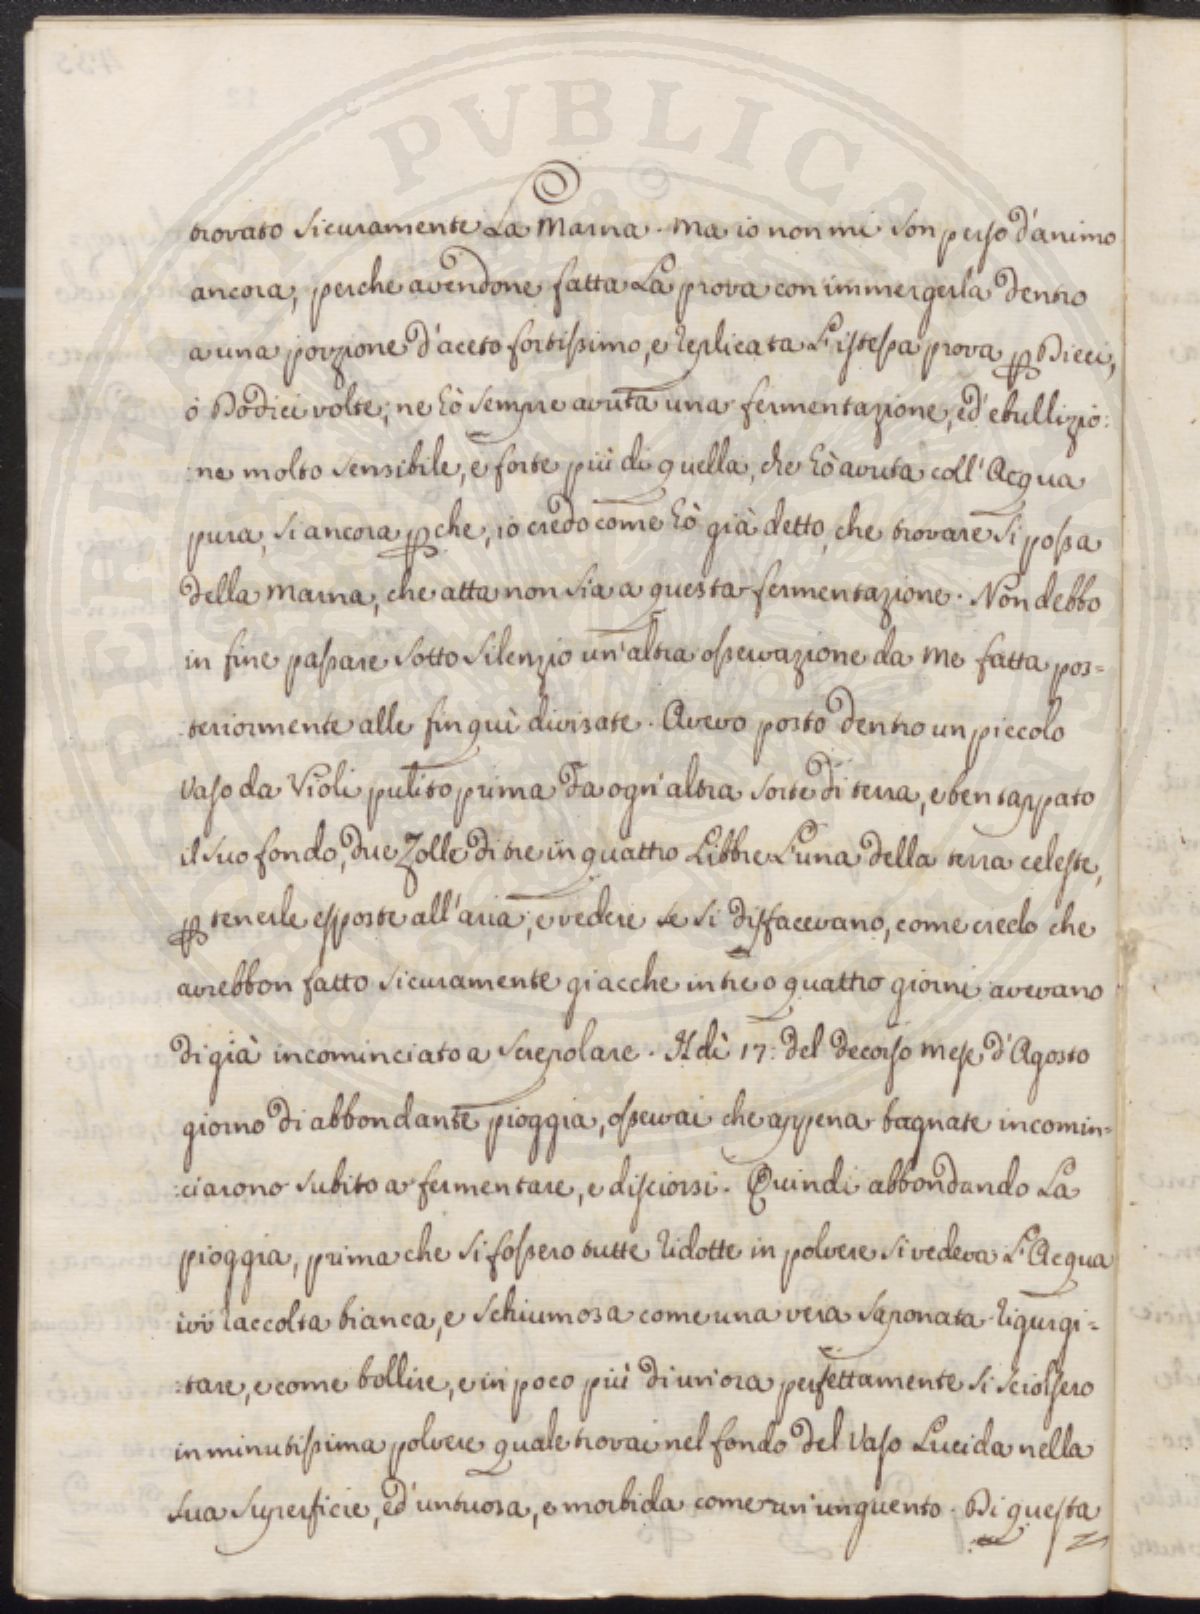 PUBLICAE
trovato sicuramente La Marna. Ma io non mi son perso d'animo
ancora, perche avendone fatta La prova con immergerla dentro
a una porzione d'aceto fortissimo, e replicata L'istessa prova p Dieci,
ò Dodici volte, ne hò sempre avuta una fermentazione, ed' ebullizio:
:ne molto sensibile, e forte più di quella, che hò avuta coll'Acqua
pura, si ancora pche, io credo come hò già detto, che trovare si possa
della Marna, che atta non sia a questa fermentazione. Non debbo
in fine passare sotto silenzio un'altra osservazione da me fatta pos=
:teriormente alle fin quì divisate. Avevo posto dentro un piccolo
Vaso da Violi pulito prima da ogn'altra sorte di terra, e ben tappato
il suo fondo, due Zolle di tre in quattro Libbre L'una della terra celeste,
p tenerle esposte all'aria, e vedere se si disfacevano, come credo che
avrebbon fatto sicuramente giacche in tre o quattro giorni avevano
di già incominciato a screpolare. Il dì 17: del decorso mese d'Agosto
giorno di abbondante pioggia, osservai che appena bagnate incomin=
:ciarono subito a fermentare, e disciorsi. Quindi abbondando La
pioggia, prima che si fossero tutte ridotte in polvere si vedeva L'Acqua
ivi raccolta bianca, e schiumosa come una vera saponata rigurgi=
:tare, e come bollire, e in poco più di un'ora perfettamente si sciolsero
in minutissima polvere quale trovai nel fondo del Vaso Lucida nella
sua superficie, ed' untuosa, e morbida come un'unguento. Di questa